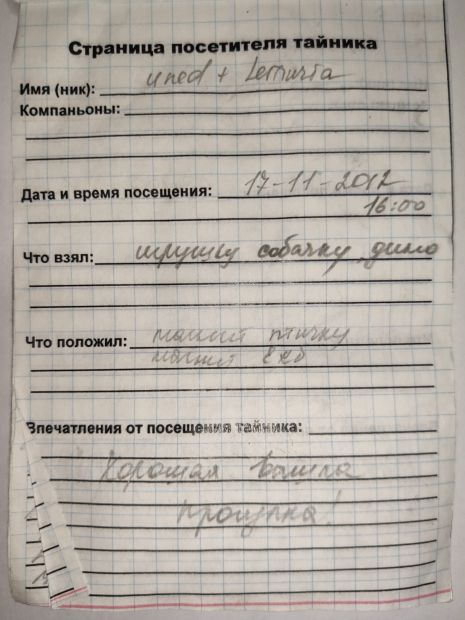 Страница посетителя тайника
Имя (ник): uned + Lemuria
Компаньоны:
Дата и время посещения: 17-11-2012
16:00
Что взял: игрушку собачку, дино
Что положил: магнит птичку
магнит Екб
Впечатления от посещения тайника:
Хорошая вышла
прогулка!